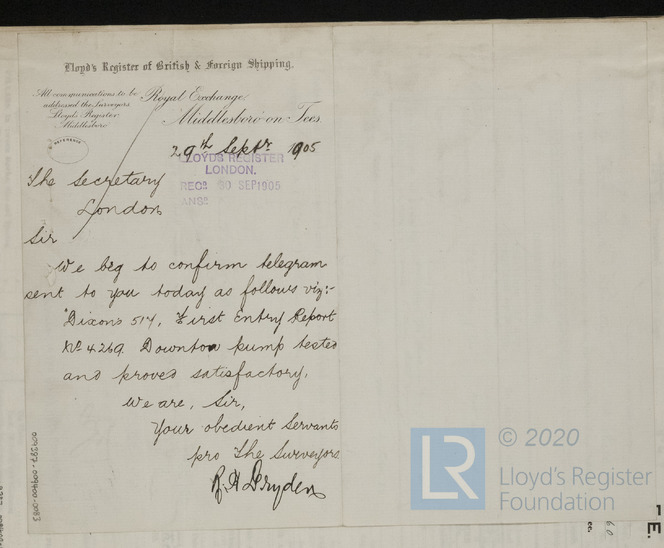 Lloyd's Register of British & Foreign Shipping.
All communications to be
addressed the Surveyors
Lloyds Register
Middlesboro'
Royal Exchange
Middlesboro'-on-Tees.
REFERENCE
29th Septr. 1905
LLOYDS REGISTER
LONDON.
RECD. 30 SEP 1905
ANSD.
The Secretary
London
Sir
We beg to confirm telegram
sent to you today as follows viz:-
"Dixons 514, First Entry Report
No. 4269. Downton pump tested
and proved satisfactory.
We are, Sir,
Your obedient Servants
pro The Surveyors
R. H. Dryden
009397-009400-0083
LR
© 2020
Lloyd's Register
Foundation
E.
60